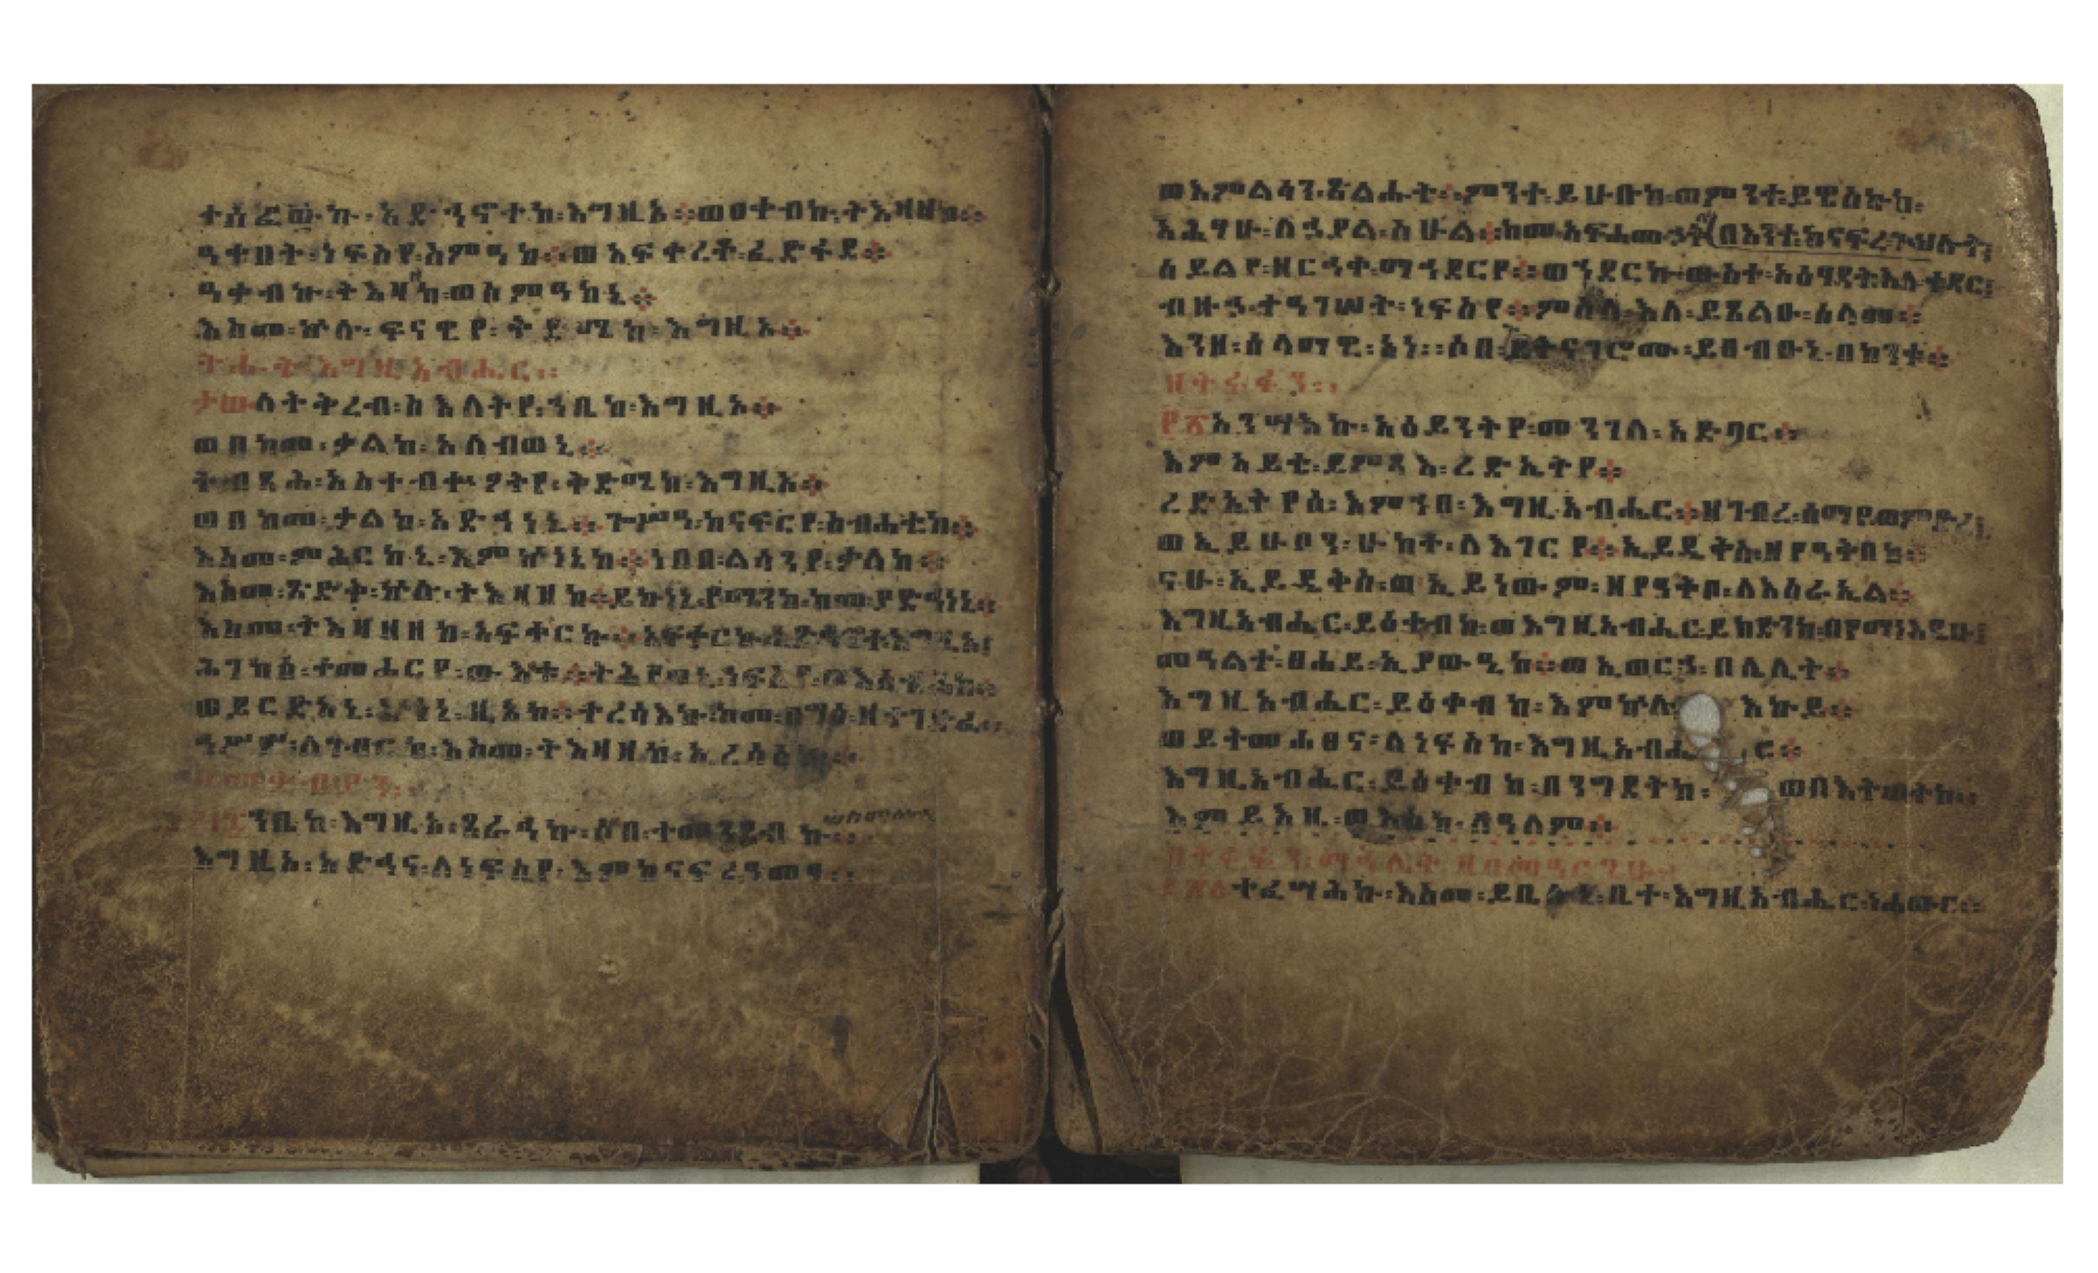 ተሰፈውኩ፡አድኅኖተከ፡እግዚአ፨ወዐቀብኩ፡ትእዛዘከ፨
ዓቀበት፡ነፍስየ፡ስምዓከ፨ወአፍቀረቶ፡ፈድፋደ፨
ዓቀብኩ፡ትእዛዘከ፡ወስምዓከኒ፨
እስመ፡ኵሉ፡ፍናዊየ፡ቅድሜከ፡እግዚአ፨
እግዚአብሔር፨
ታው ለትቅረብ፡ስእለትየ፡ኀቤከ፡እግዚአ፨
ወበከመ፡ቃልከ፡አለብወኒ፨
ትብጻሕ፡አስተብቍዖትየ፡ቅድሜከ፡እግዚአ፨
ወበከመ፡ቃልከ፡አድኅነኒ፨ጐሥዓ፡ከናፍርየ፡ስብሐቲከ፨
እስመ፡ምሕርከኒ፡እምኵነኔከ፨ነበበ፡ልሳንየ፡ቃለከ፨
እስመ፡ጽድቅ፡ኵሉ፡ትእዛዝከ፨ይኩነኒ፡የማንከ፡ከመ፡ያድኅነኒ፨
እስመ፡ትእዛዘዘከ፡አፍቀርኩ፨አፍቀርኩ፡አድኅኖተከ፡እግዚአ፤
ሕገከሰ፡ተመሐርየ፡ውእቱ፨ትሕየወኒ፡ነፍስየ፡ወእሴብሐከ፨
ወይርድአኒ፡ኵነኔ፡ዚአከ፨ተረሳእኩ፡ከመ፡በግዕ፡ዘተገድፈ፨
ኅሥሦ፡ለገብርከ፡እስመ፡ትእዛዘከ፡ኢረሳዕኩ፨
ኀቤከ፡እግዚአ፡ጸራኅኩ፡ሶበ፡ተመንደብኩ፨
እግዚአ፡አድኅና፡ለነፍስየ፡እምከናፍረ፡ዓመፃ፨
ወእምልሳን፡ጽልሑት፨ምንተ፡ይሁቡከ፡ወምንተ፡ይዌስኩከ፡
አሕፃሁ፡ለኃያል፡ስሁል፨ከመ፡አፍሐመ፡
ሰይልየ፡ዘርኅቀ፡ማኅደርየ፨ወኀደርኩ፡ውስተ፡አዕፃዳት፡
ብዙኃ፡ተዓገሠት፡ነፍስየ፨ምስለ፡እለ፡ይጸልኡ፡ሰላመ፨
እንዘ፡ሰላማዊ፡አነ፡፡ሶበ፡እትናገሮሙ፡ይፀብኡኒ፡በከንቱ፨
፻፳ አንሣእኩ፡አዕይንትየ፡መንገለ፡አድባር፨
እምአይቴ፡ይምጻእ፡ረድኤትየ፨
ረድኤትየሰ፡እምኀበ፡እግዚአብሔር፨ዘገብረ፡ሰማየ፡ወምድረ፤
ወኢይሁቦን፡ሁከት፡ለእገርየ፨ኢይዴቅስ፡ዘየዓቅበከ፨
ናሁ፡ኢይዴቅስ፡ወኢይነውም፡ዘየዓቅቦ፡ለእስራኤል፨
እግዚአብሔር፡ይዕቀብከ፡ወእግዚአብሔር፡ይክድንከ፡በየማነ፡እዴሁ፤
መዓልተ፡ፀሐይ፡ኢያውዒከ፨ወኢወርኃ፡በሌሊት፨
እግዚአብሔር፡ይዕቀብከ፡እምኵሉ እኩይ፨
ወይትመሐፀና፡ለነፍስከ፡እግዚአብሔር፨
እግዚአብሔር፡ይዕቀብከ፡በንግደትከ፡ወበእትወትከ፨
እምይእዜ፡ወእስከ፡ለዓለም፨
ተፈሣሕኩ፡እስመ፡ይቤሉኒ፡ቤተ፡እግዚአብሔር፡ነሐውር፨